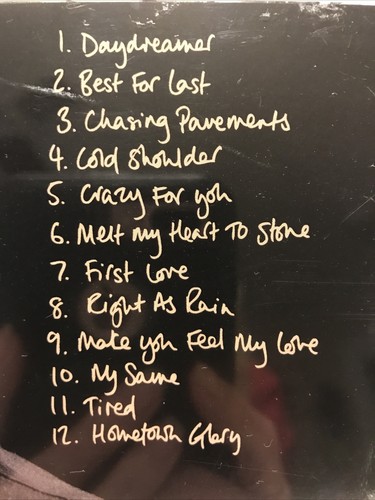 1. Daydreamer
2. Best For Last
3. Chasing Pavements
4. Cold Shoulder
5. Crazy For you
6. Melt my Heart To Stone
7. First Love
8. Right As Rain
9. Make you Feel My Love
10. My Same
11. Tired
12. Hometown Glory